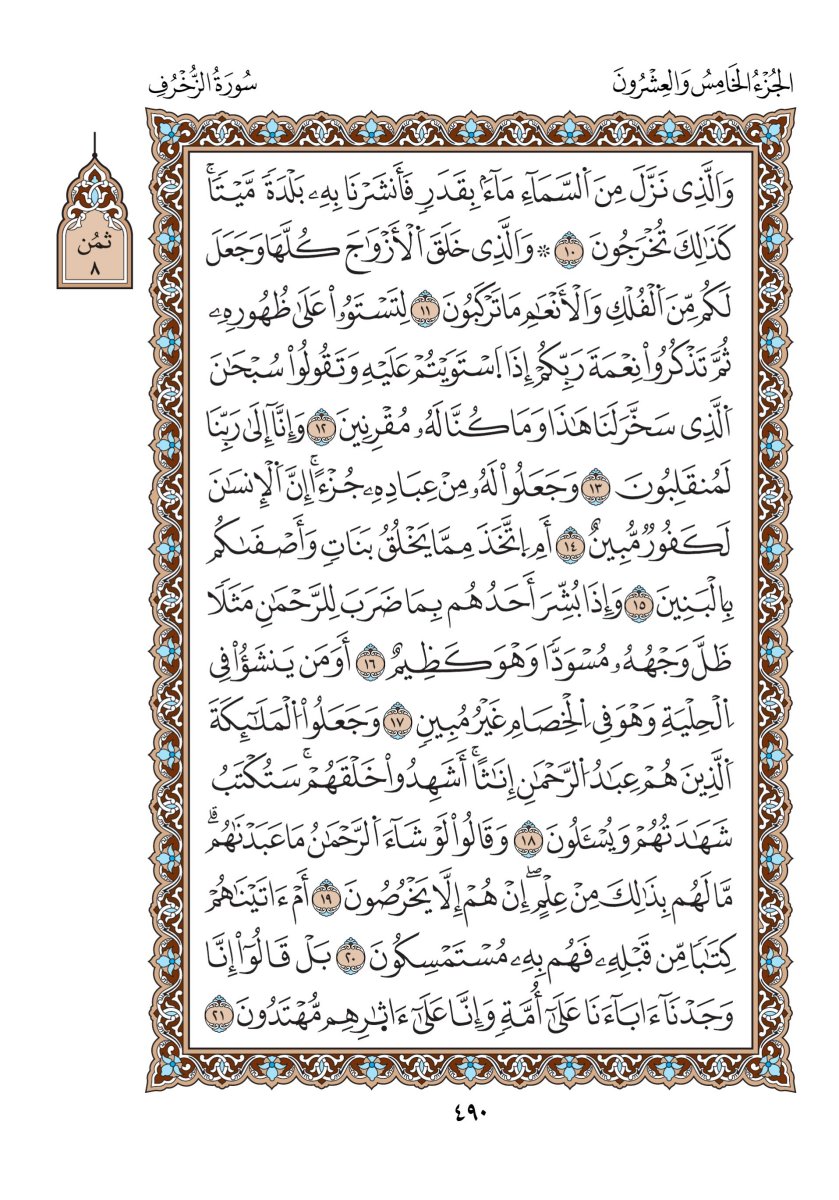 الجُزْءُ الخَامِسُ وَالعِشْرُونَ
سُورَةُ الزُّخْرُفِ
ثمُن
٨
وَالَّذِى نَزَّلَ مِنَ اَ۬لسَّمَآءِ مَآءَۢ بِقَدَرٖ فَأَنشَرْنَا بِهِۦ بَلْدَةٗ مَّيْتٗاۚ
كَذَٰلِكَ تُخْرَجُونَ ١٠ ۞ وَالَّذِى خَلَقَ اَ۬لْأَزْوَٰجَ كُلَّهَا وَجَعَلَ
لَكُم مِّنَ اَ۬لْفُلْكِ وَالْأَنْعَٰمِ مَا تَرْكَبُونَ ١١ لِتَسْتَوُۥاْ عَلَىٰ ظُهُورِهِۦ
ثُمَّ تَذْكُرُواْ نِعْمَةَ رَبِّكُمْ إِذَا اَ۪سْتَوَيْتُمْ عَلَيْهِ وَتَقُولُواْ سُبْحَٰنَ
اَ۬لَّذِى سَخَّرَ لَنَا هَٰذَا وَمَا كُنَّا لَهُۥ مُقْرِنِينَ ١٢ وَإِنَّآ إِلَىٰ رَبِّنَا
لَمُنقَلِبُونَ ١٣ وَجَعَلُواْ لَهُۥ مِنْ عِبَادِهِۦ جُزْءًاۚ إِنَّ اَ۬لْإِنسَٰنَ
لَكَفُورٞ مُّبِينٌ ١٤ أَمِ اِ۪تَّخَذَ مِمَّا يَخْلُقُ بَنَاتٖ وَأَصْفَىٰكُم
بِالْبَنِينَ ١٥ وَإِذَا بُشِّرَ أَحَدُهُم بِمَا ضَرَبَ لِلرَّحْمَٰنِ مَثَلٗا
ظَلَّ وَجْهُهُۥ مُسْوَدّٗا وَهْوَ كَظِيمٌ ١٦ أَوَمَن يَنشَؤُاْ فِى
اِ۬لْحِلْيَةِ وَهْوَ فِى اِ۬لْخِصَامِ غَيْرُ مُبِينٖ ١٧ وَجَعَلُواْ اُ۬لْمَلَٰٓئِكَةَ
اَ۬لَّذِينَ هُمْ عِبَٰدُ اُ۬لرَّحْمَٰنِ إِنَٰثًاۚ أَشَهِدُواْ خَلْقَهُمْۚ سَتُكْتَبُ
شَهَٰدَتُهُمْ وَيُسْـَٔلُونَ ١٨ وَقَالُواْ لَوْ شَآءَ اَ۬لرَّحْمَٰنُ مَا عَبَدْنَٰهُمۗ
مَّا لَهُم بِذَٰلِكَ مِنْ عِلْمٍۖ إِنْ هُمْ إِلَّا يَخْرُصُونَ ١٩ أَمْ ءَاتَيْنَٰهُمْ
كِتَٰبٗا مِّن قَبْلِهِۦ فَهُم بِهِۦ مُسْتَمْسِكُونَ ٢٠ بَلْ قَالُوٓاْ إِنَّا
وَجَدْنَآ ءَابَآءَنَا عَلَىٰٓ أُمَّةٖ وَإِنَّا عَلَىٰٓ ءَاثٰ۪رِهِم مُّهْتَدُونَ ٢١
٤٩٠